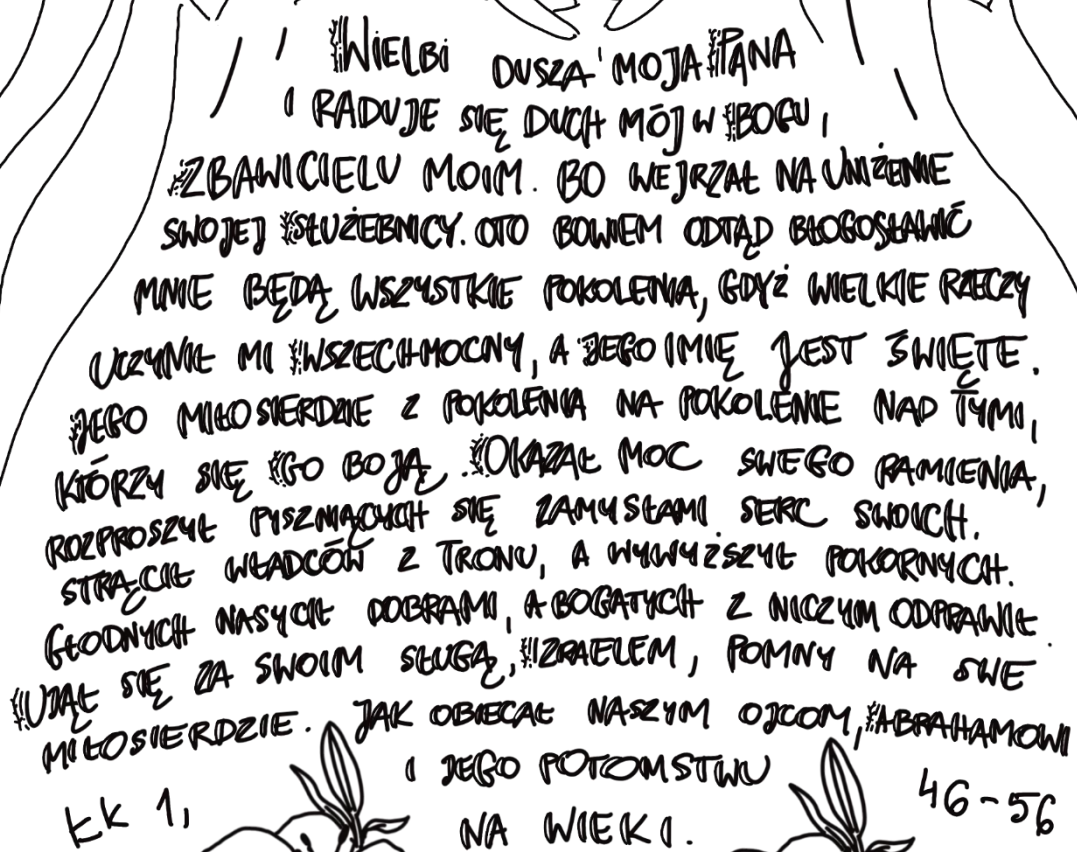 WIELBI DUSZA MOJA PANA
I RADUJE SIĘ DUCH MÓJ W BOGU,
ZBAWICIELU MOIM. BO WEJRZAŁ NA UNIŻENIE
SWOJEJ SŁUŻEBNICY. OTO BOWIEM ODTĄD BŁOGOSŁAWIĆ
MNIE BĘDĄ WSZYSTKIE POKOLENIA, GDYŻ WIELKIE RZECZY
UCZYNIŁ MI WSZECHMOCNY, A JEGO IMIĘ JEST ŚWIĘTE.
JEGO MIŁOSIERDZIE Z POKOLENIA NA POKOLENIE NAD TYMI,
KTÓRZY SIĘ GO BOJĄ. OKAZAŁ MOC SWEGO RAMIENIA,
ROZPROSZYŁ PYSZNIĄCYCH SIĘ ZAMYSŁAMI SERC SWOICH.
STRĄCIŁ WŁADCÓW Z TRONU, A WYWYŻSZYŁ POKORNYCH.
GŁODNYCH NASYCIŁ DOBRAMI, A BOGATYCH Z NICZYM ODPRAWIŁ.
UJĄŁ SIĘ ZA SWOIM SŁUGĄ, IZRAELEM, POMNY NA SWE
MIŁOSIERDZIE. JAK OBIECAŁ NASZYM OJCOM, ABRAHAMOWI
I JEGO POTOMSTWU
NA WIEKI.
ŁK 1, 46-56